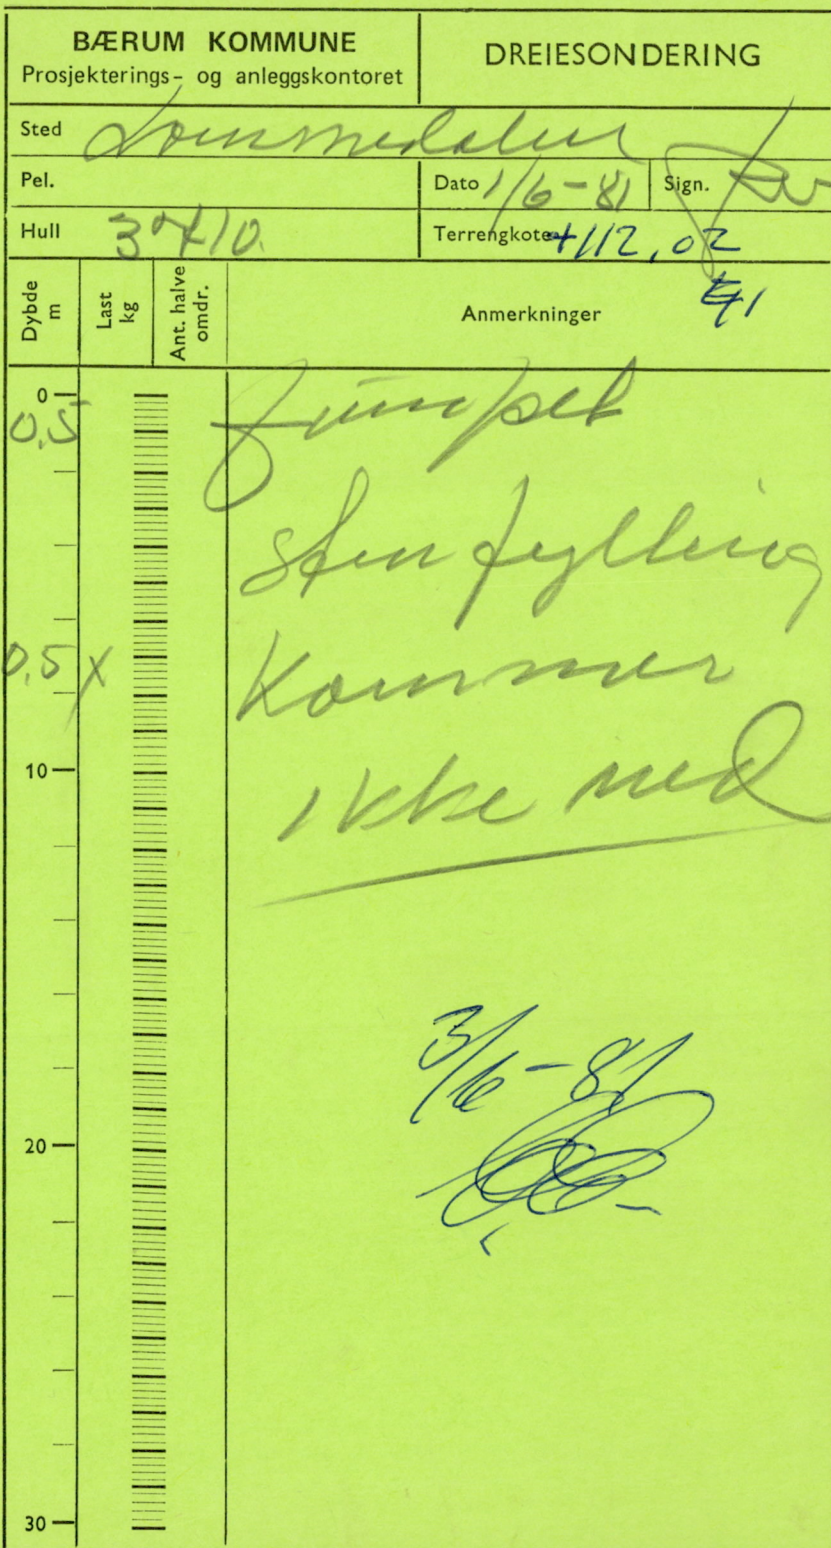 BÆRUM KOMMUNE
Prosjekterings- og anleggskontoret
DREIESONDERING
Sted Lommedalen
Pel.
Dato 1/6-81
Sign.
Hull
Terrengkote +112,02
Dybde m
Last kg
Ant. halve omdr.
Anmerkninger
0
0,5
sten fylling
0,5 x
Kommer
10
ikke ned
3/6-81
20
30